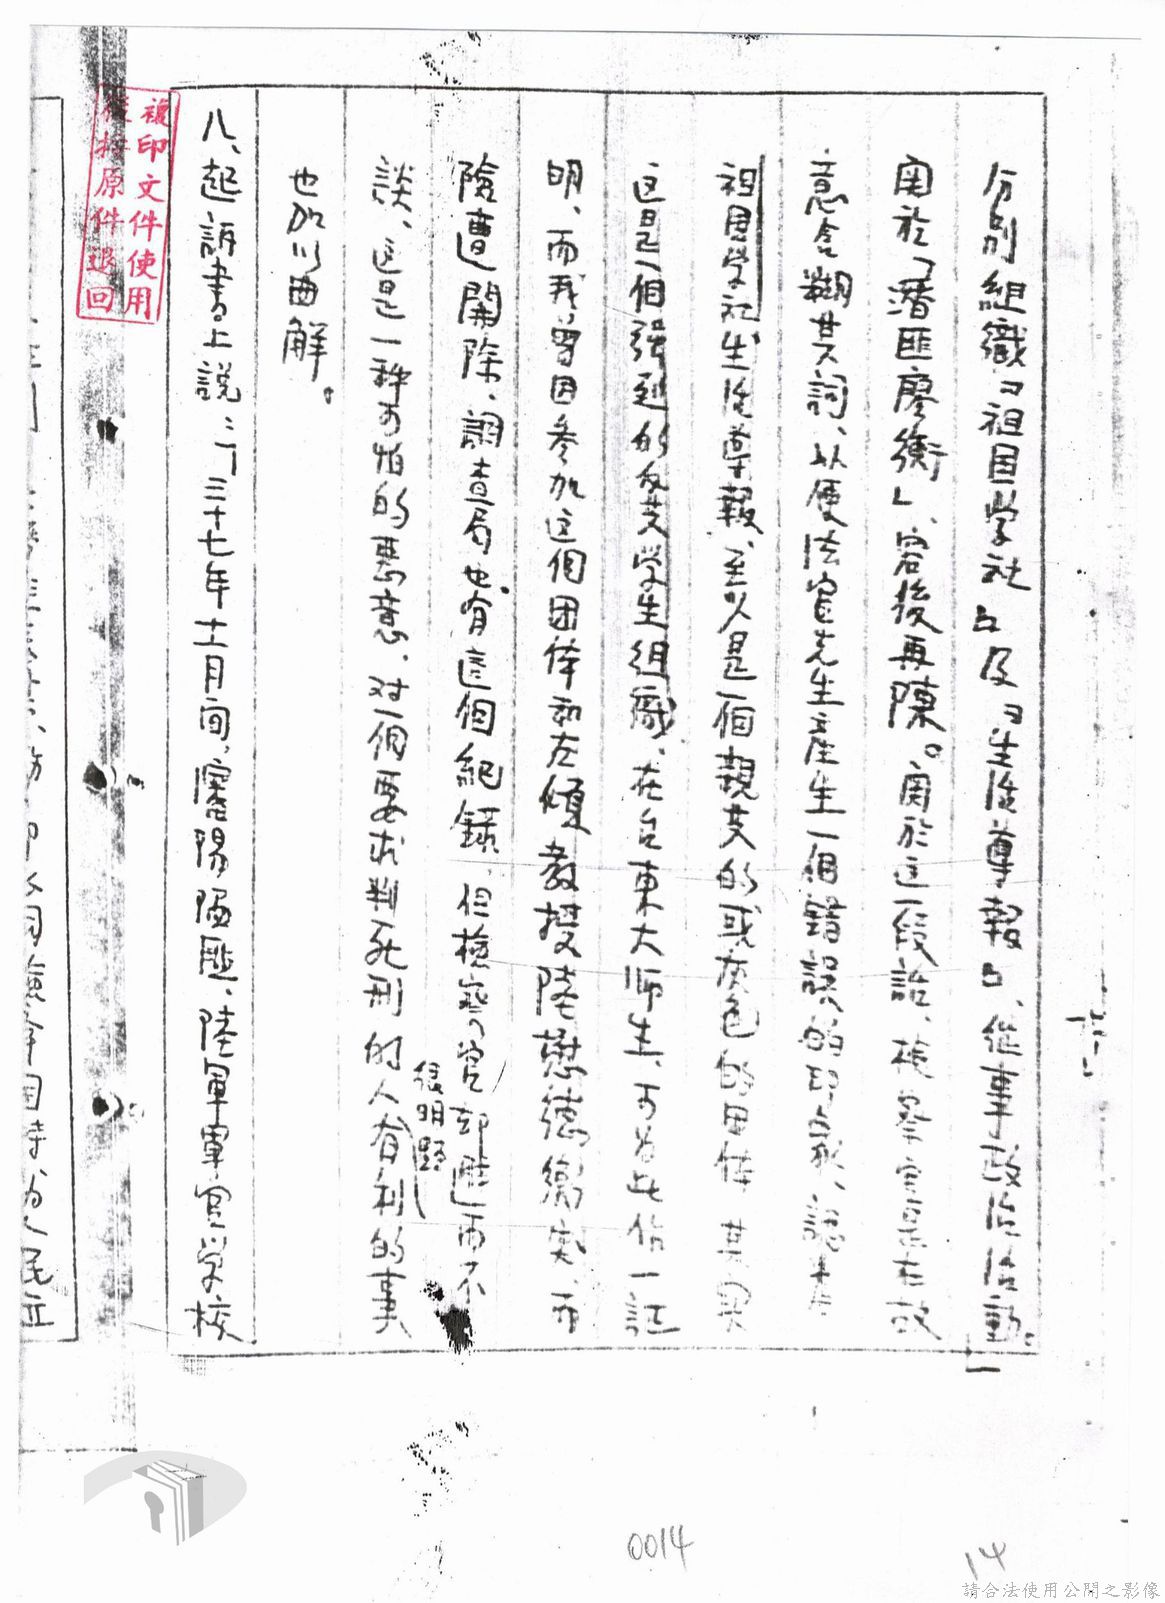 分別組織「祖国学社」及「生活導報」、從事政治活動。」
関於「潛匪廖衡」、容後再陳。関於这一段話、検察官是在故
意含糊其詞、以便法官先生産生一個錯誤的印象、認為
祖国学社生活導報、至少是一個親共的或灰色的団体 其实
这是一個強烈的反共学生組織、在台東大师生、可為此作一証
明、而我曾因参加这個団体和左傾教授陸懋德衝突、而
險遭開除、調查局也有這個紀錄、但検察官却
張明題
匪而不
談、这是一种可怕的悪意、对一個要求判死刑的人有利的事
也加以曲解。
八、起訴書上說：「三十七年十一月间、瀋陽陷匪、陸軍軍官学校
複印文件使用
後將原件退回
0014
14
請合法使用公開之影像